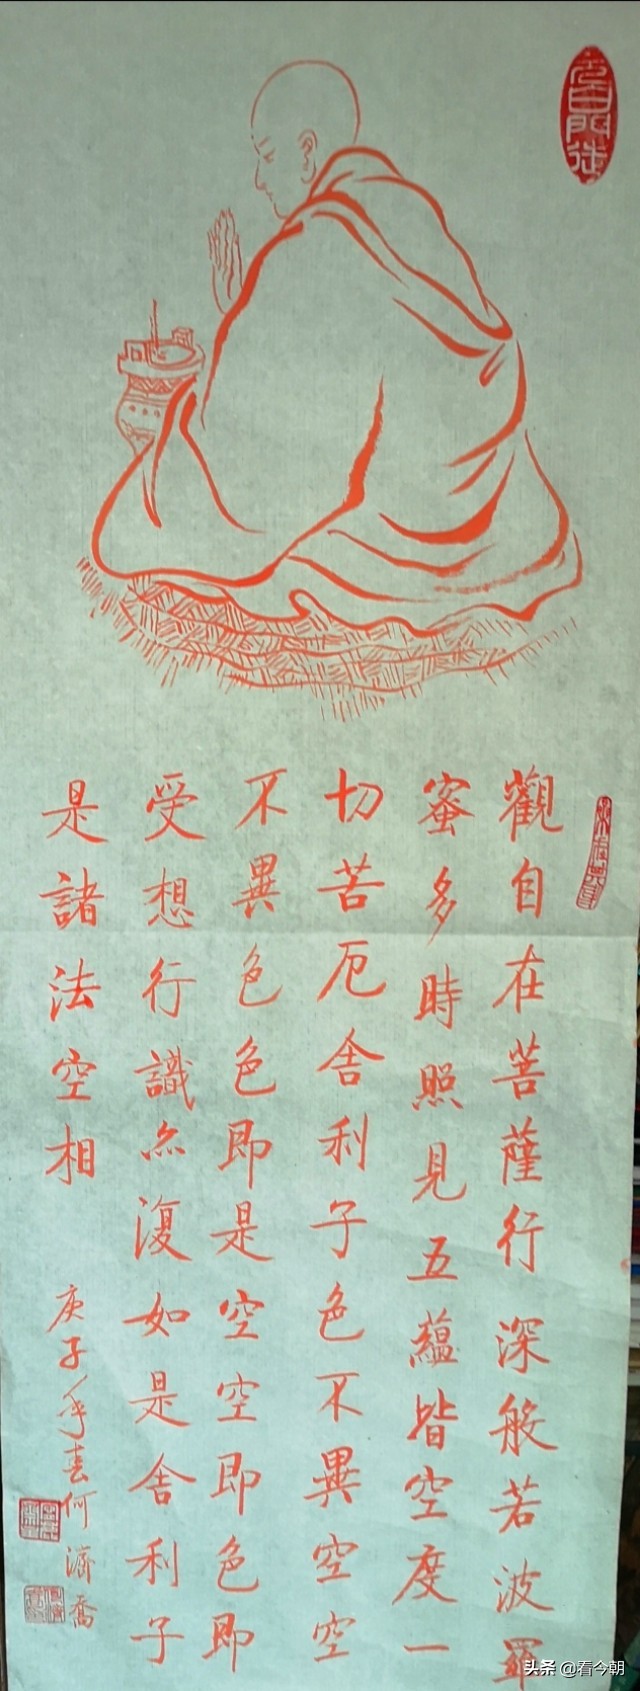 元白門徒
觀自在菩薩行深般若波羅
蜜多時照見五蘊皆空度一
切苦厄舍利子色不異空空
不異色色即是空空即色即
受想行識亦復如是舍利子
是諸法空相
庚子年春何濟喬
头条 @看今朝